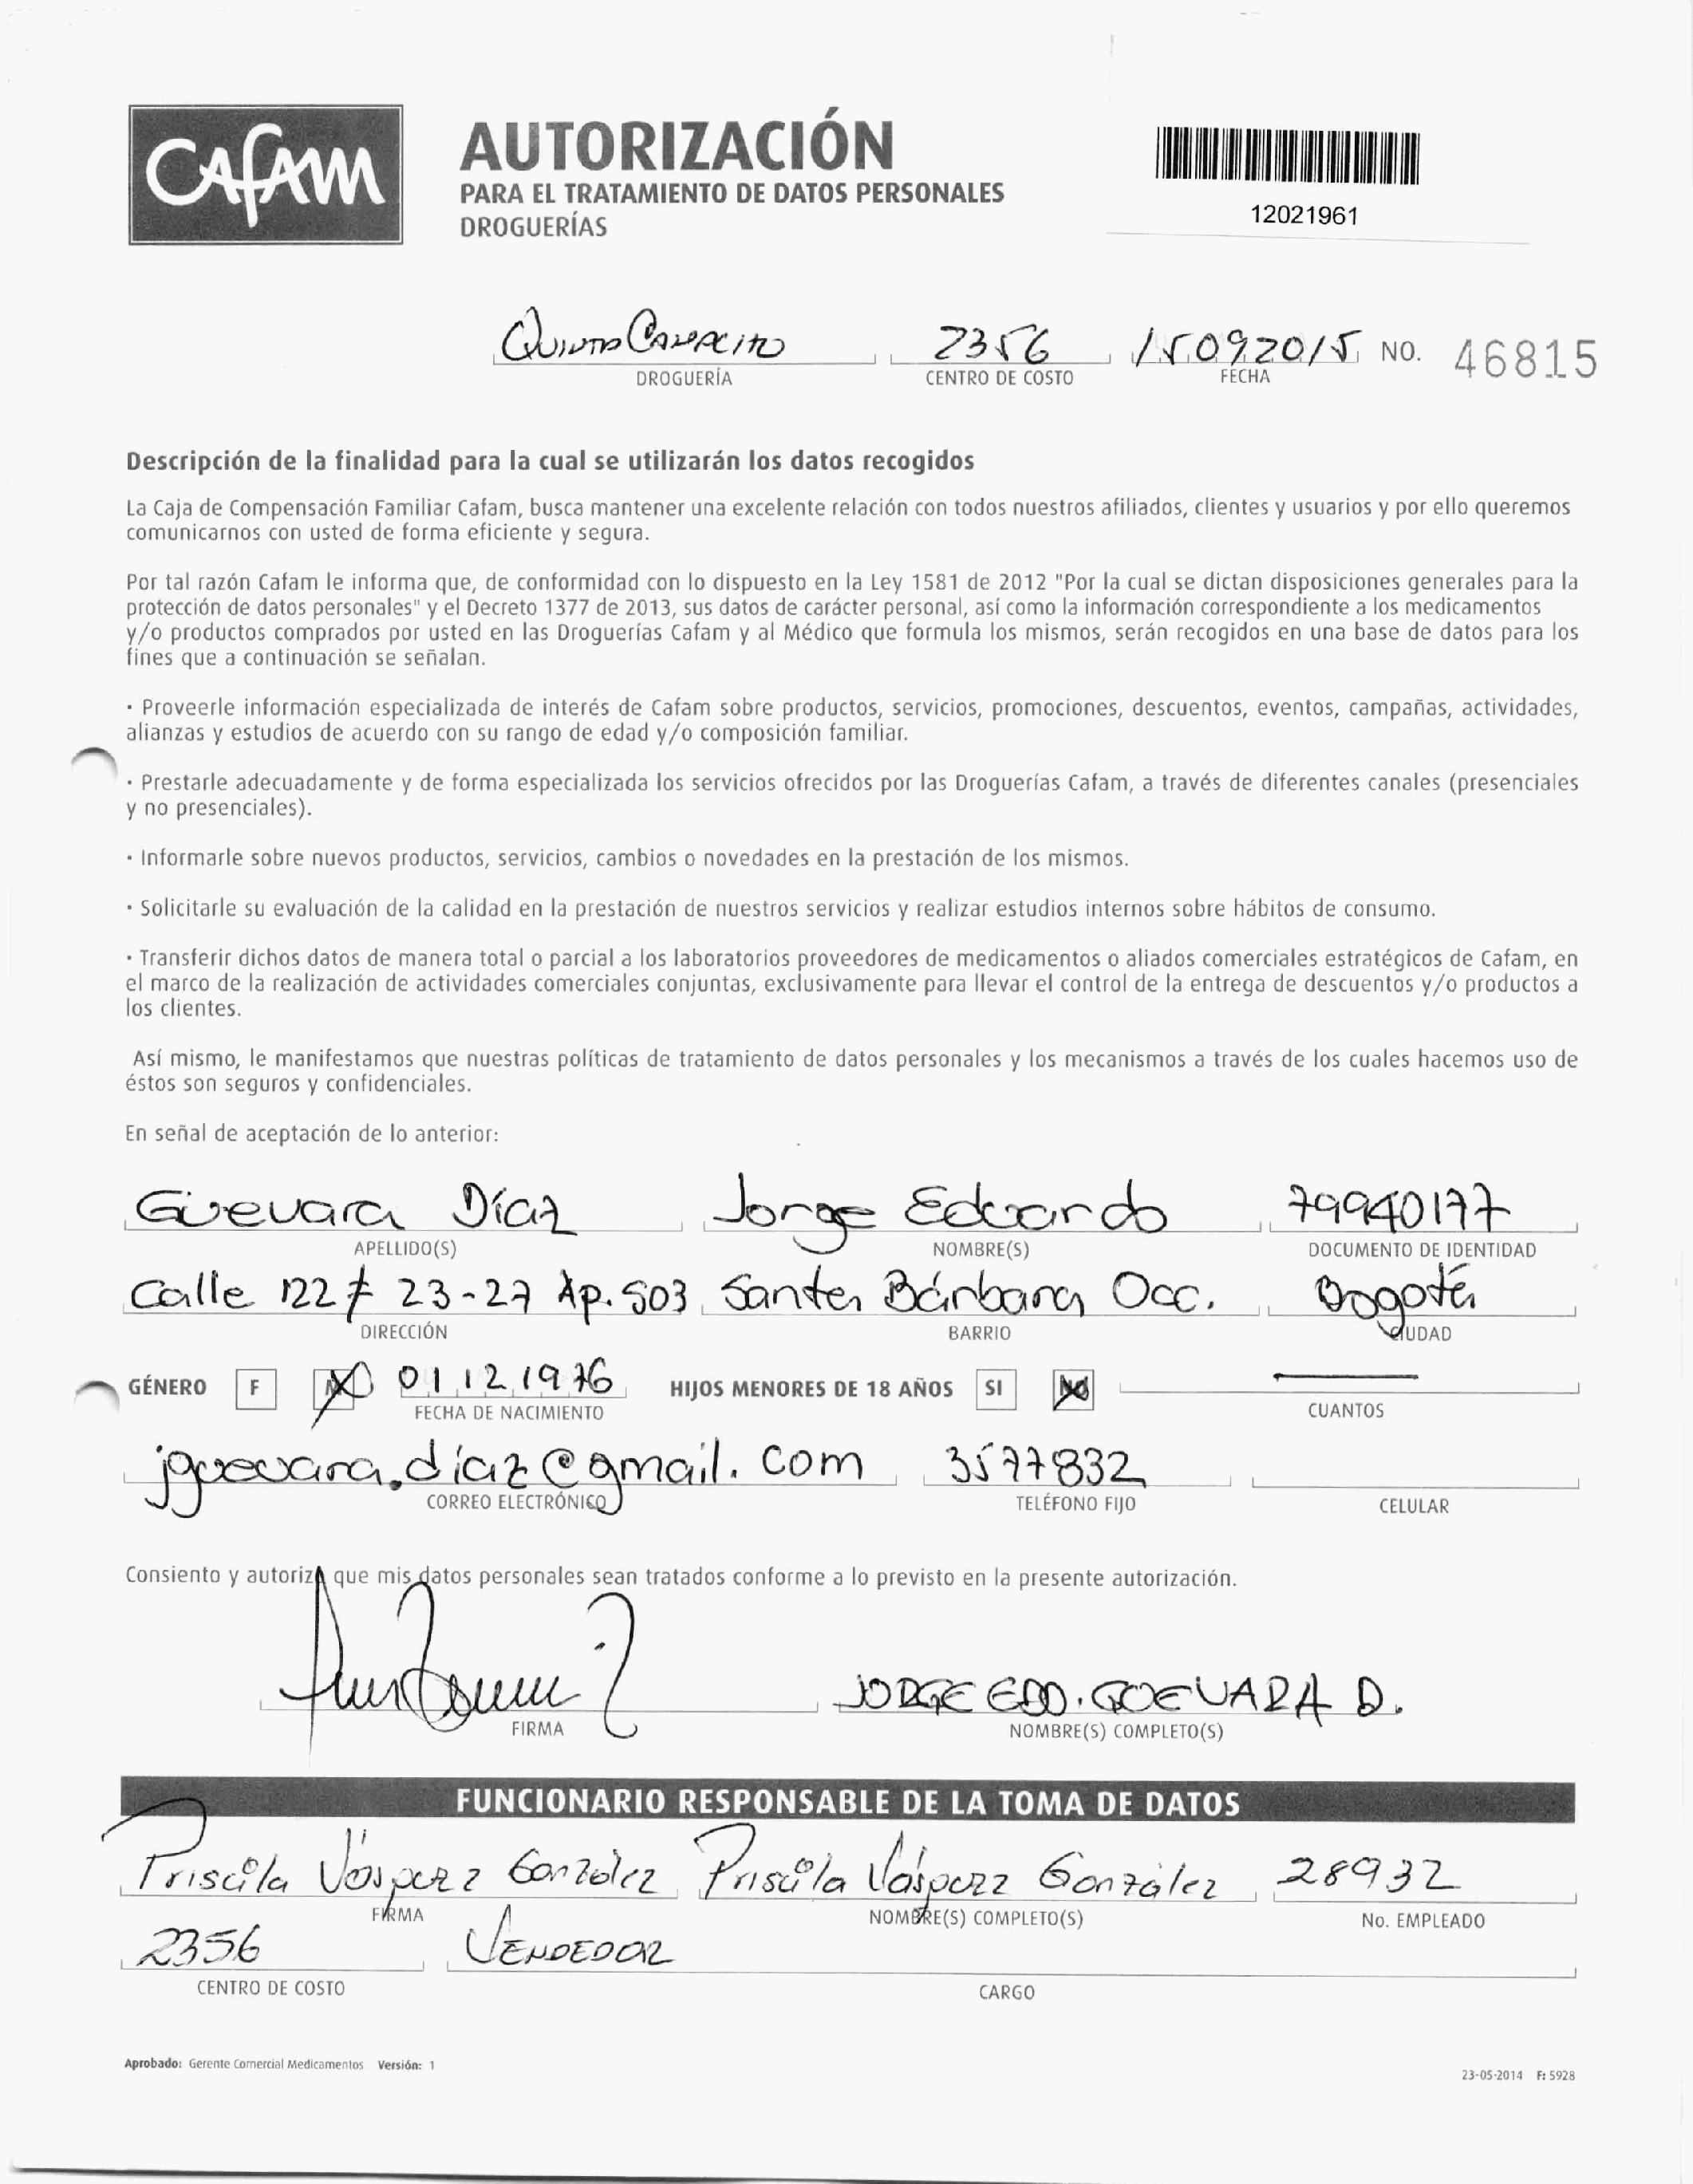 CAFAM
AUTORIZACIÓN
PARA EL TRATAMIENTO DE DATOS PERSONALES
DROGUERÍAS
12021961
2356 15092015 NO. 46815
DROGUERÍA CENTRO DE COSTO FECHA
Descripción de la finalidad para la cual se utilizarán los datos recogidos
La Caja de Compensación Familiar Cafam, busca mantener una excelente relación con todos nuestros afiliados, clientes y usuarios y por ello queremos
comunicarnos con usted de forma eficiente y segura.
Por tal razón Cafam le informa que, de conformidad con lo dispuesto en la Ley 1581 de 2012 "Por la cual se dictan disposiciones generales para la
protección de datos personales" y el Decreto 1377 de 2013, sus datos de carácter personal, así como la información correspondiente a los medicamentos
y/o productos comprados por usted en las Droguerías Cafam y al Médico que formula los mismos, serán recogidos en una base de datos para los
fines que a continuación se señalan.
· Proveerle información especializada de interés de Cafam sobre productos, servicios, promociones, descuentos, eventos, campañas, actividades,
alianzas y estudios de acuerdo con su rango de edad y/o composición familiar.
· Prestarle adecuadamente y de forma especializada los servicios ofrecidos por las Droguerías Cafam, a través de diferentes canales (presenciales
y no presenciales).
· Informarle sobre nuevos productos, servicios, cambios o novedades en la prestación de los mismos.
· Solicitarle su evaluación de la calidad en la prestación de nuestros servicios y realizar estudios internos sobre hábitos de consumo.
· Transferir dichos datos de manera total o parcial a los laboratorios proveedores de medicamentos o aliados comerciales estratégicos de Cafam, en
el marco de la realización de actividades comerciales conjuntas, exclusivamente para llevar el control de la entrega de descuentos y/o productos a
los clientes.
Así mismo, le manifestamos que nuestras políticas de tratamiento de datos personales y los mecanismos a través de los cuales hacemos uso de
éstos son seguros y confidenciales.
En señal de aceptación de lo anterior:
Guevara Díaz Jorge Eduardo 79940177
APELLIDO(S) NOMBRE(S) DOCUMENTO DE IDENTIDAD
Calle 122 # 23-27 Ap. 503 Santa Bárbara Occ. Bogotá
DIRECCIÓN BARRIO CIUDAD
GÉNERO F M 01 12 1976 HIJOS MENORES DE 18 AÑOS SI NO
FECHA DE NACIMIENTO CUANTOS
jguevara.diaz@gmail.com 3577832
CORREO ELECTRÓNICO TELÉFONO FIJO CELULAR
Consiento y autorizo que mis datos personales sean tratados conforme a lo previsto en la presente autorización.
JORGE EDD. GUEVARA D.
FIRMA NOMBRE(S) COMPLETO(S)
FUNCIONARIO RESPONSABLE DE LA TOMA DE DATOS
Priscila González Priscila González 28932
FIRMA NOMBRE(S) COMPLETO(S) No. EMPLEADO
2356 VENDEDOR
CENTRO DE COSTO CARGO
Aprobado: Gerente Comercial Medicamentos Versión: 1
23-05-2014 F: 5928